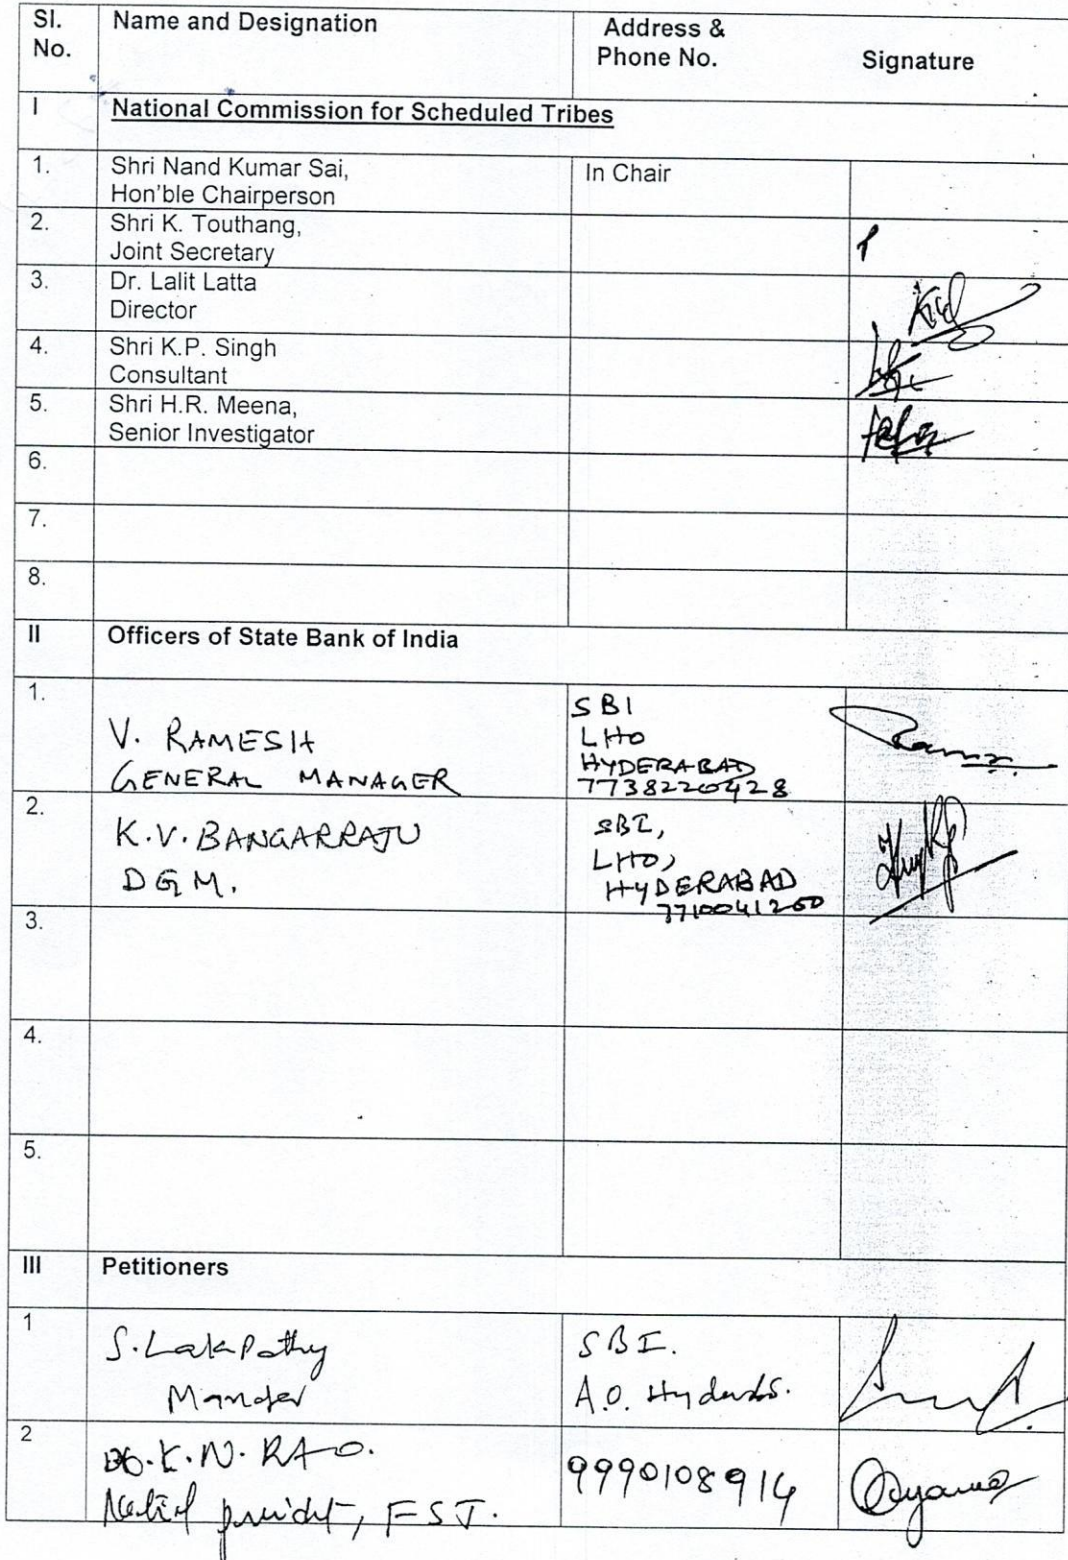 Sl. No. Name and Designation Address & Phone No. Signature
I National Commission for Scheduled Tribes
1. Shri Nand Kumar Sai, In Chair
Hon'ble Chairperson
2. Shri K. Touthang,
Joint Secretary
3. Dr. Lalit Latta
Director
4. Shri K.P. Singh
Consultant
5. Shri H.R. Meena,
Senior Investigator
6.
7.
8.
II Officers of State Bank of India
1.
V. RAMESH
GENERAL MANAGER
SBI
LHO
HYDERABAD
7738220428
2.
K.V. BANGARRAJU
DGM.
SBI,
LHO,
HYDERABAD
7710041260
3.
4.
5.
III Petitioners
1
S. Lakpathy
Manager
SBI.
A.O.
2
K.N. RAO.
9990108914